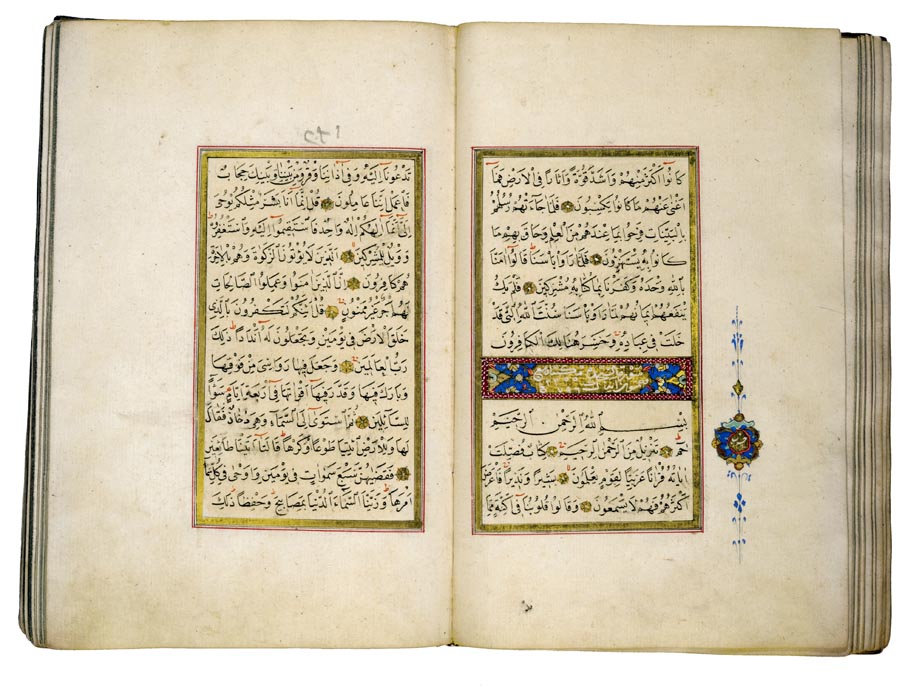 كَانُوا اَكْثَرَ مِنْهُمْ وَاَشَدَّ قُوَّةً وَاٰثَارًا فِى الْاَرْضِ فَمَٓا
اَغْنٰى عَنْهُمْ مَا كَانُوا يَكْسِبُونَ فَلَمَّا جَٓاءَتْهُمْ رُسُلُهُمْ
بِالْبَيِّنَاتِ فَرِحُوا بِمَا عِنْدَهُمْ مِنَ الْعِلْمِ وَحَاقَ بِهِمْ مَا
كَانُوا بِهِ يَسْتَهْزِؤُنَ فَلَمَّا رَاَوْا بَأْسَنَا قَالُٓوا اٰمَنَّا
بِاللّٰهِ وَحْدَهُ وَكَفَرْنَا بِمَا كُنَّا بِهِ مُشْرِكِينَ فَلَمْ يَكُ
يَنْفَعُهُمْ اِيمَانُهُمْ لَمَّا رَاَوْا بَأْسَنَا سُنَّتَ اللّٰهِ الَّتِى قَدْ
خَلَتْ فِى عِبَادِهِ وَخَسِرَ هُنَالِكَ الْكَافِرُونَ
بِسْمِ اللّٰهِ الرَّحْمٰنِ الرَّحِيمِ
حٰمٓ تَنْزِيلٌ مِنَ الرَّحْمٰنِ الرَّحِيمِ كِتَابٌ فُصِّلَتْ
اٰيَاتُهُ قُرْاٰنًا عَرَبِيًّا لِقَوْمٍ يَعْلَمُونَ بَشِيرًا وَنَذِيرًا فَاَعْرَضَ
اَكْثَرُهُمْ فَهُمْ لَا يَسْمَعُونَ وَقَالُوا قُلُوبُنَا فِٓى اَكِنَّةٍ مِمَّا
تَدْعُونَٓا اِلَيْهِ وَفِٓى اٰذَانِنَا وَقْرٌ وَمِنْ بَيْنِنَا وَبَيْنِكَ حِجَابٌ
فَاعْمَلْ اِنَّنَا عَامِلُونَ قُلْ اِنَّمَٓا اَنَا بَشَرٌ مِثْلُكُمْ يُوحٰٓى
اِلَىَّ اَنَّمَٓا اِلٰهُكُمْ اِلٰهٌ وَاحِدٌ فَاسْتَقِيمُٓوا اِلَيْهِ وَاسْتَغْفِرُوهُ
وَوَيْلٌ لِلْمُشْرِكِينَ الَّذِينَ لَا يُؤْتُونَ الزَّكٰوةَ وَهُمْ بِالْاٰخِرَةِ
هُمْ كَافِرُونَ اِنَّ الَّذِينَ اٰمَنُوا وَعَمِلُوا الصَّالِحَاتِ
لَهُمْ اَجْرٌ غَيْرُ مَمْنُونٍ قُلْ اَئِنَّكُمْ لَتَكْفُرُونَ بِالَّذِى
خَلَقَ الْاَرْضَ فِى يَوْمَيْنِ وَتَجْعَلُونَ لَهُٓ اَنْدَادًا ذٰلِكَ
رَبُّ الْعَالَمِينَ وَجَعَلَ فِيهَا رَوَاسِىَ مِنْ فَوْقِهَا
وَبَارَكَ فِيهَا وَقَدَّرَ فِيهَٓا اَقْوَاتَهَا فِٓى اَرْبَعَةِ اَيَّامٍ سَوَٓاءً
لِلسَّٓائِلِينَ ثُمَّ اسْتَوٰٓى اِلَى السَّمَٓاءِ وَهِىَ دُخَانٌ فَقَالَ
لَهَا وَلِلْاَرْضِ ائْتِيَا طَوْعًا اَوْ كَرْهًا قَالَتَٓا اَتَيْنَا طَٓائِعِينَ
فَقَضٰيهُنَّ سَبْعَ سَمٰوَاتٍ فِى يَوْمَيْنِ وَاَوْحٰى فِى كُلِّ سَمَٓاءٍ
اَمْرَهَا وَزَيَّنَّا السَّمَٓاءَ الدُّنْيَا بِمَصَابِيحَ وَحِفْظًا ذٰلِكَ